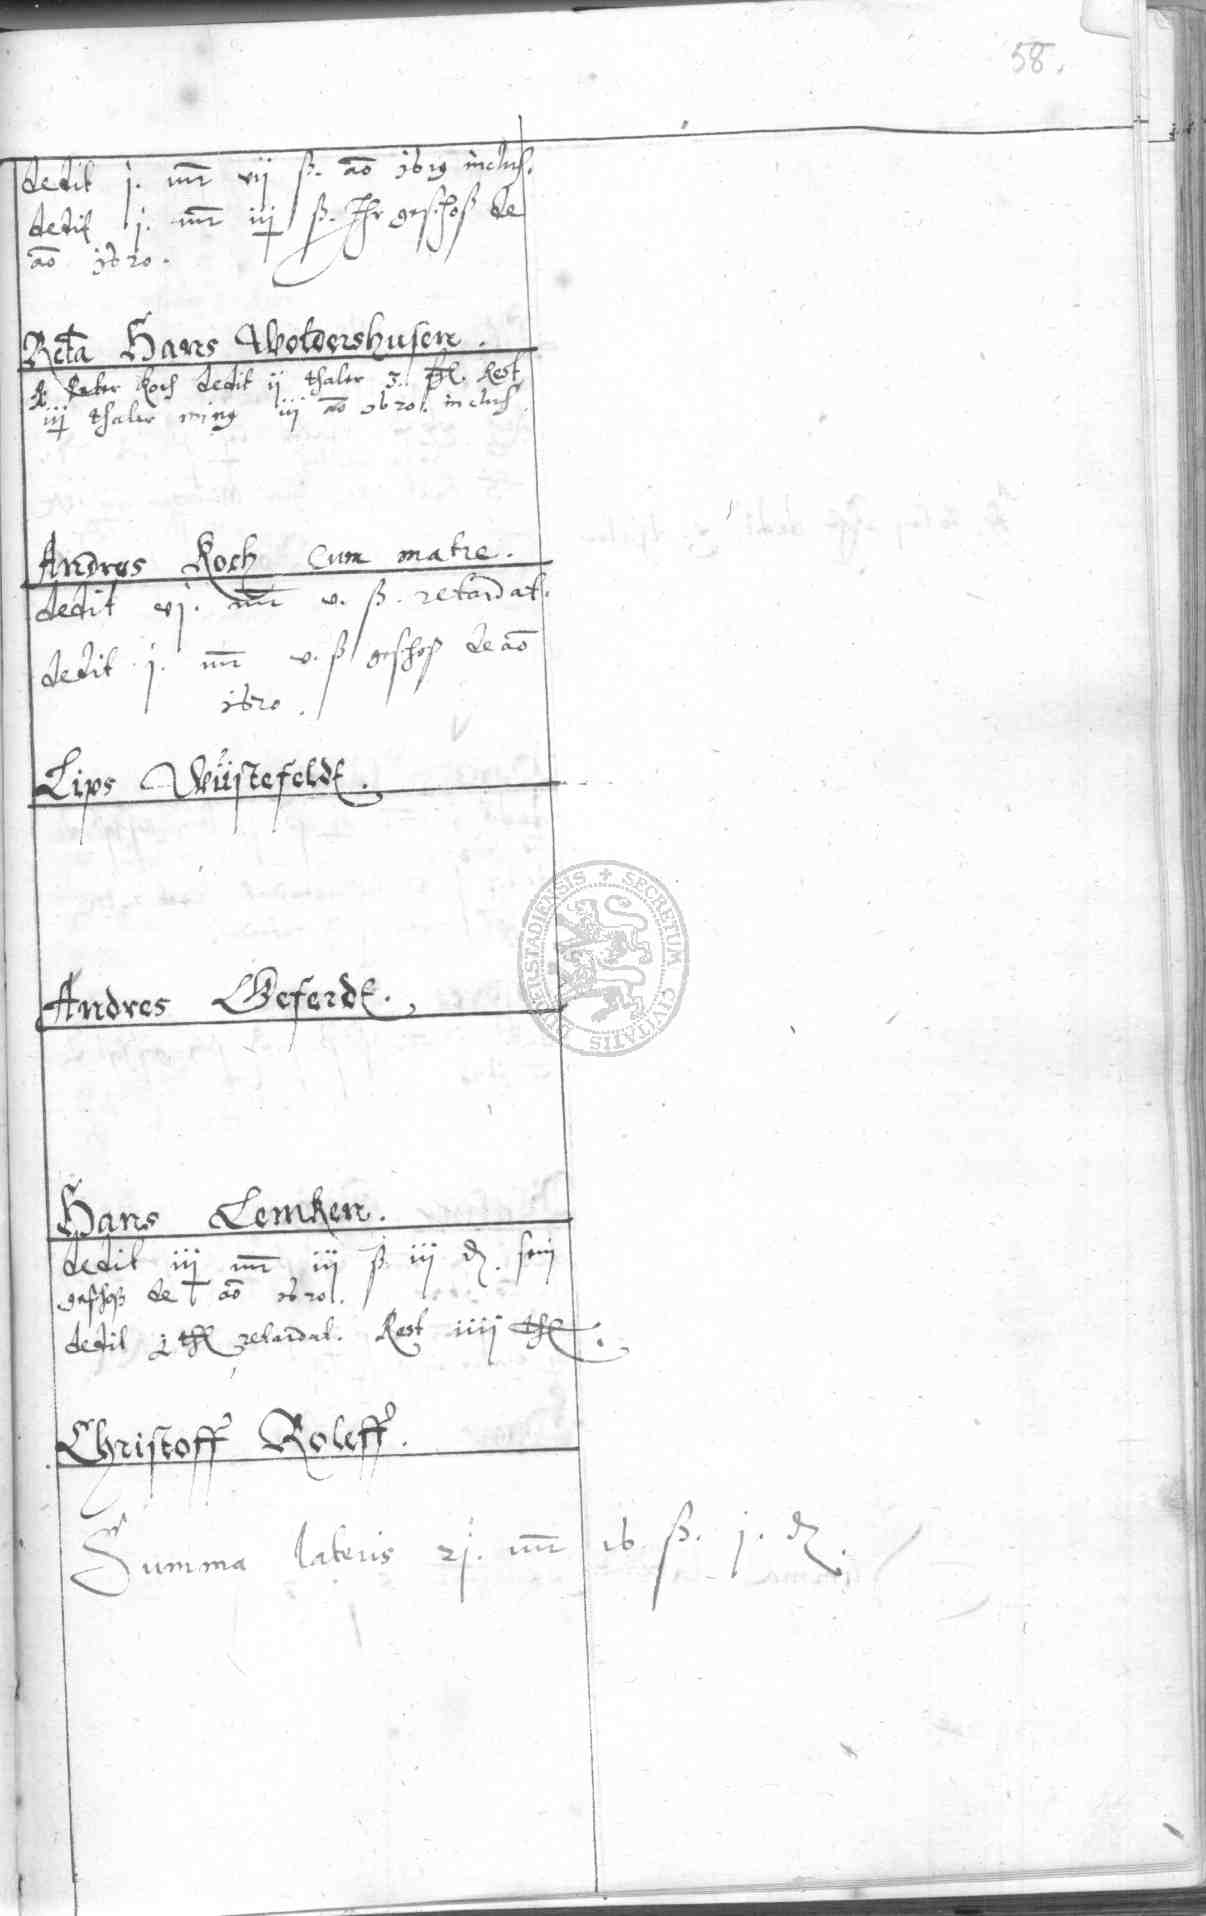 58.
dedit j. mr vij ß. ao 1619 inclus.
dedit j. mr iij ß. Ihr geschoß de
ao 1620.
Rcta Hans Woldershusen.
Peter Koch dedit ij thaler 3. Rest
iij thaler iij ao 1620. inclus.
Andres Koch cum matre.
dedit vj. mr v. ß. retardat.
dedit j. mr v. ß geschoß de ao
1620.
Lips Wüstefeldt.
Andres Geferdt.
SECRETUM CIVITATIS DUDERSTADIENSIS
Hans Lemken.
dedit iij mr iij ß iij d. sein
geschoß de ao 1620.
dedit thl retardat. Rest iiij thl.
Christoff Roleff.
Summa lateris 2j. mr 16 ß. j. d.